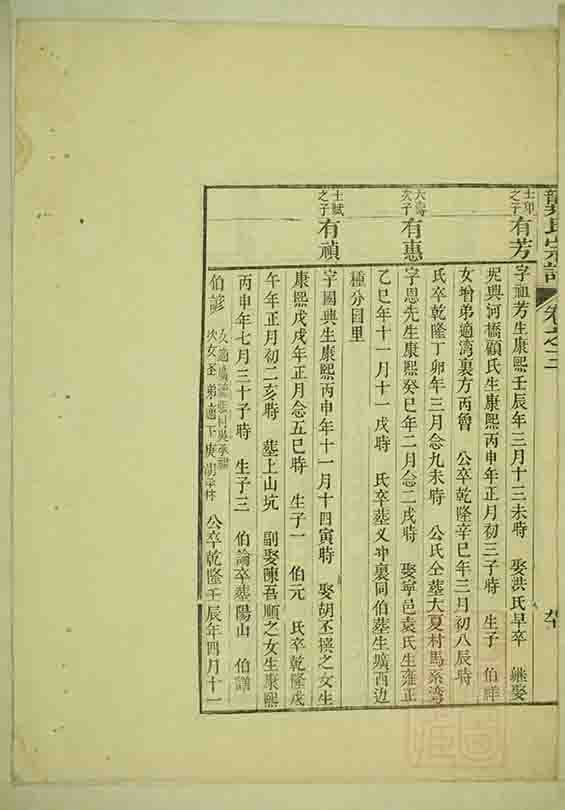 龔氏宗譜 卷之三
士印之子 有芳
字祖芳生康熙壬辰年三月十三未時 娶洪氏早卒 繼娶
興河橋顧氏生康熙丙申年正月初三子時 生子 伯祥
女增弟適灣裏方丙魯 公卒乾隆辛巳年三月初八辰時
氏卒乾隆丁卯年三月念九未時 公氏仝墓大夏村馬系湾
次子 有惠
字恩先生康熙癸巳年二月念二戌時 娶寧邑袁氏生雍正
乙巳年十一月十一戌時 氏卒墓义冲裏同伯墓生壙西边
種分园里
之子 有禎
字國興生康熙丙申年十一月十四寅時 娶胡丕 之女生
康熙戊戌年正月念五巳時 生子一 伯元 氏卒乾隆戊
午年正月初二亥時 墓上山坑 副娶陳吾順之女生康熙
丙申年七月三十子時 生子三 伯論卒墓陽山 伯譜
伯諺
次女 弟適下庚胡
公卒乾隆壬辰年四月十一